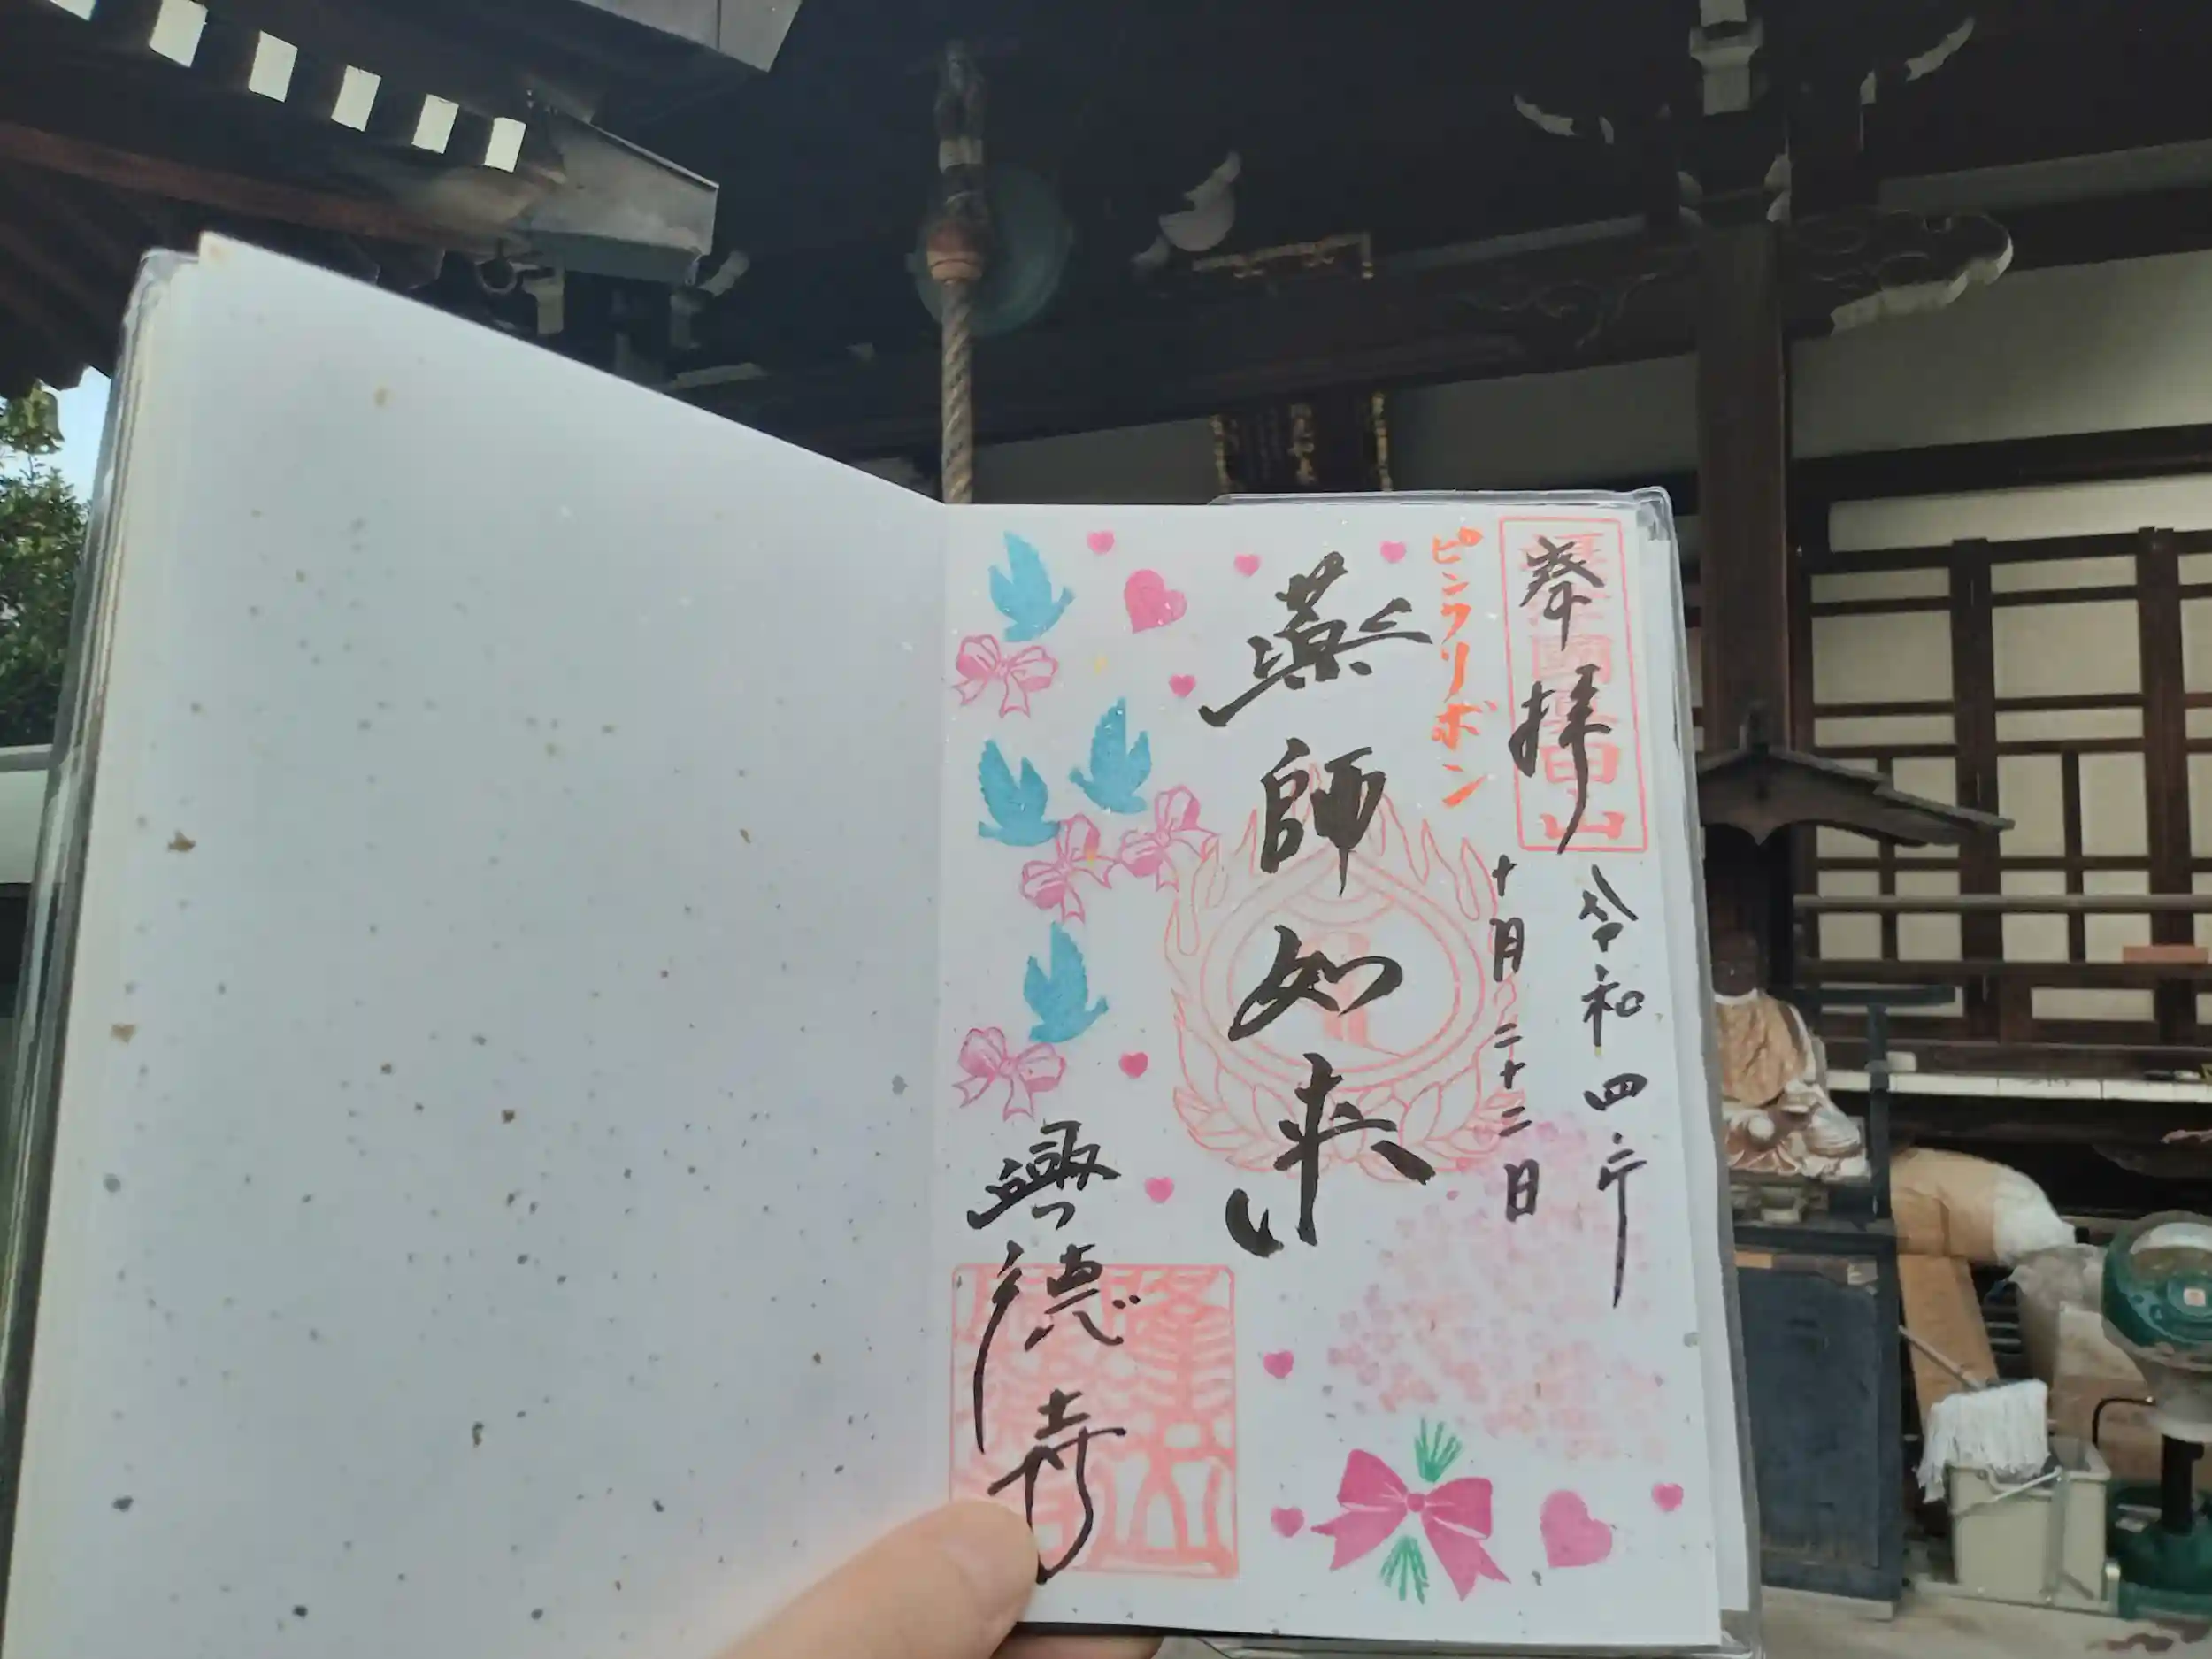 奉拝
令和四年
十月二十二日
ピンクリボン
薬師如来
興德寺